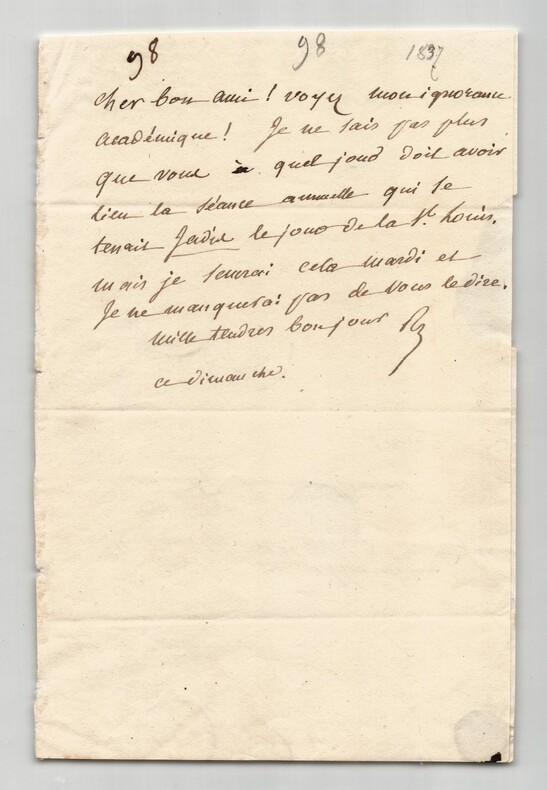 98 98 1837
cher bon ami ! voyez mon ignorance
académique ! Je ne sais pas plus
que vous à quel jour doit avoir
lieu la séance annuelle qui se
tenait Jadis le jour de la St Louis.
mais je saurai cela mardi et
Je ne manquerai pas de vous le dire.
mille tendres bonjour
ce dimanche.